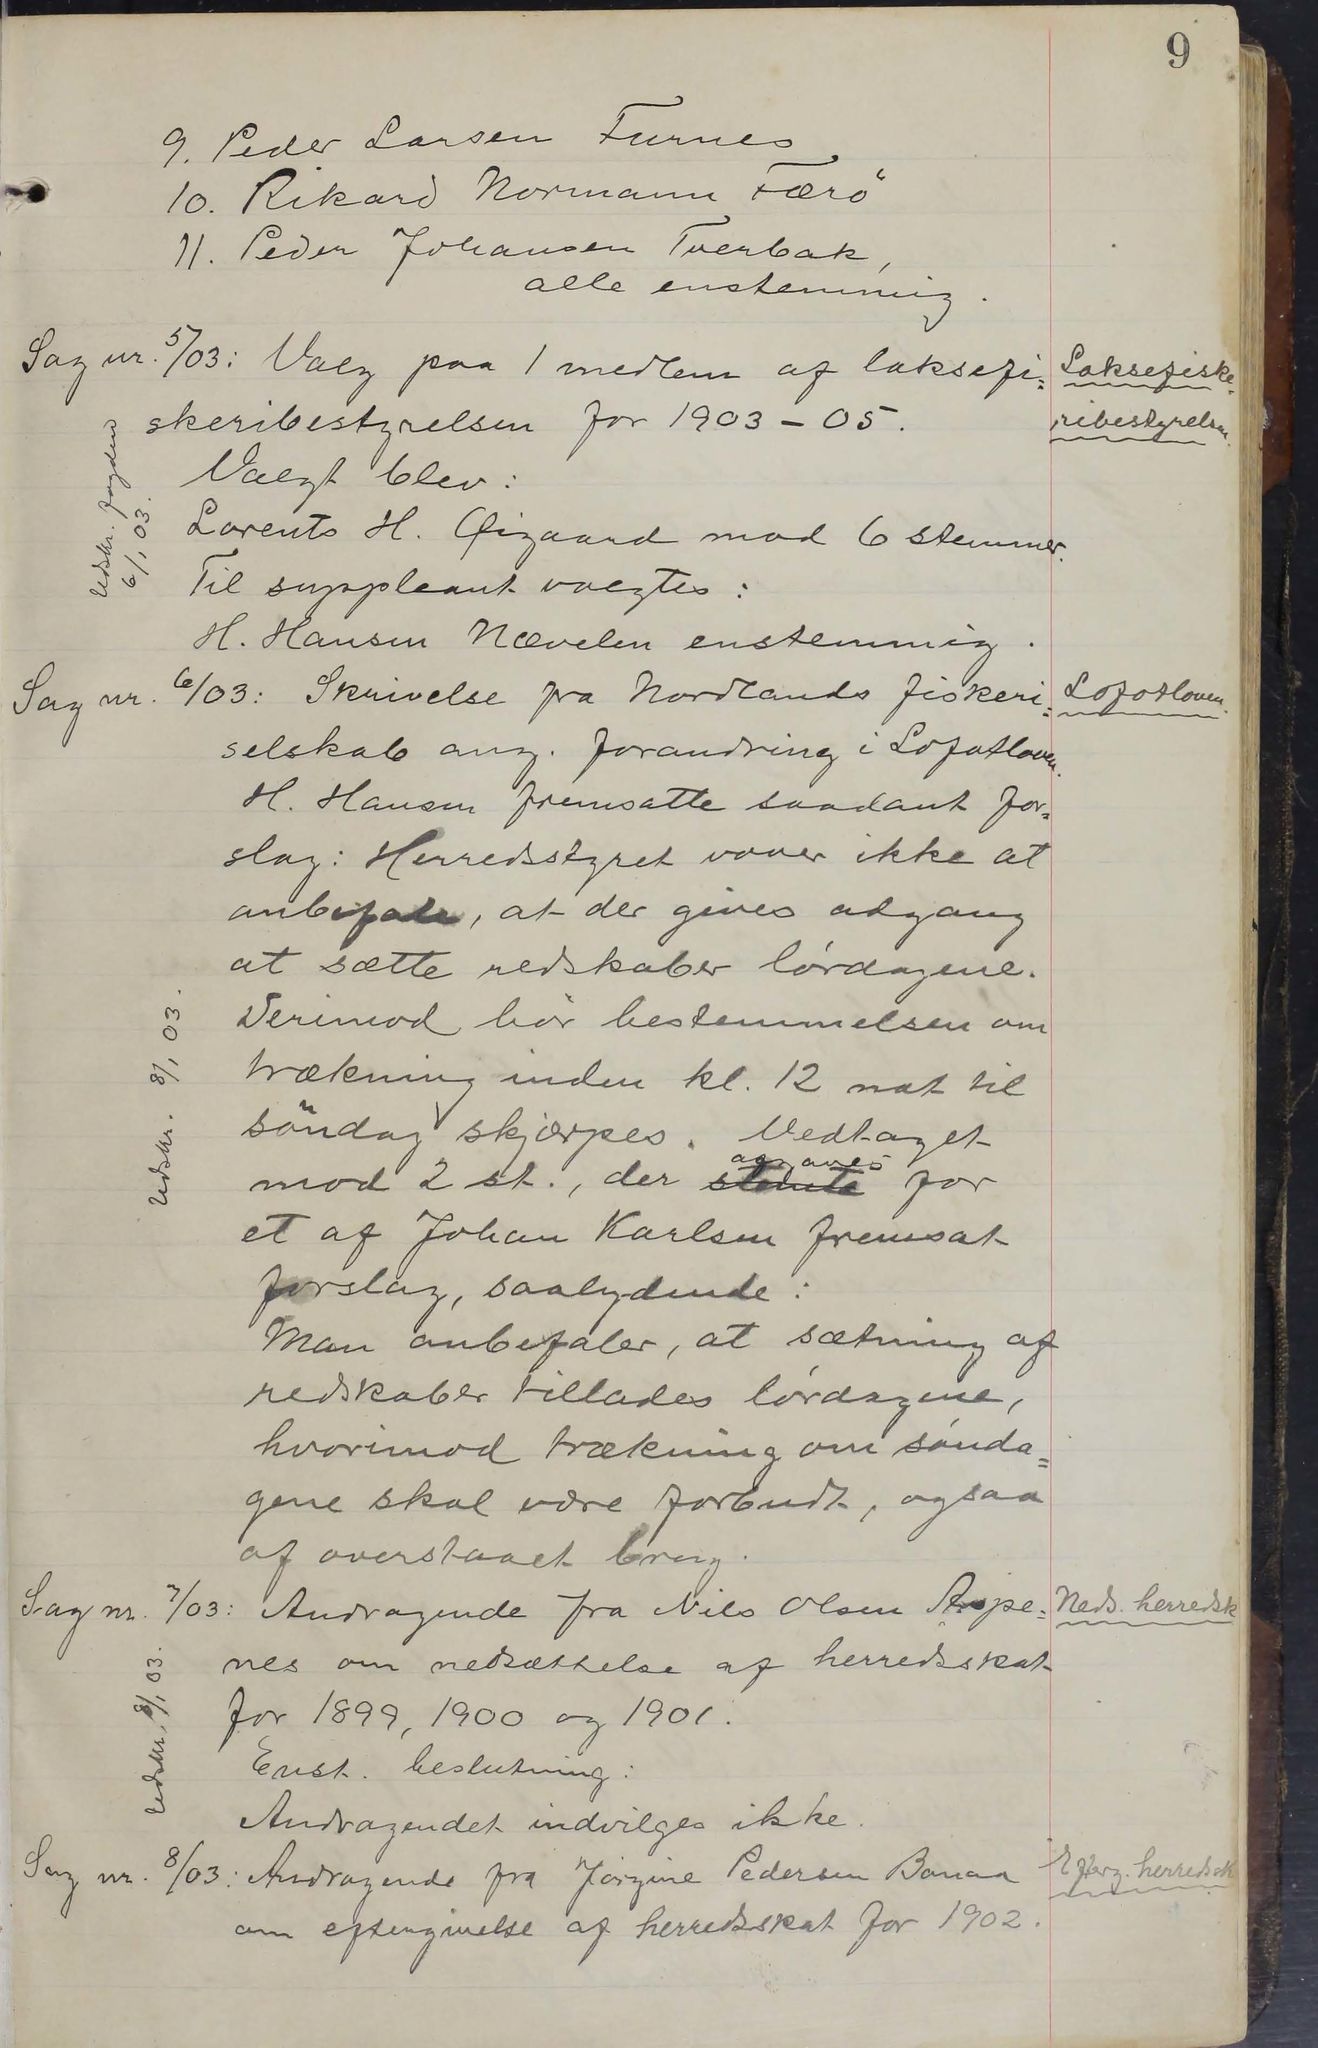 9
9. Peder Larsen Furnes
10. Rikard Normann Færö
11. Peder Johansen Tverbak,
alle enstemmig.
Sag nr. 5/03: Valg paa 1 medlem af laksefi=
skeribestyrelsen for 1903 - 05.
Laksefiske-
ribestyrelsen.
Valgt blev:
Lorents H. Øigaard mod 6 stemmer.
Til suppleant valgtes:
H. Hansen Nævelen enstemmig.
Udskr. fogden
6/1 03.
Sag nr. 6/03: Skrivelse fra Nordlands fiskeri=
Lofotloven.
selskab ang. forandring i Lofotloven.
H. Hansen fremsatte saadant for=
slag: Herredsstyret vover ikke at
anbefale, at der gives adgang
at sætte redskaber lørdagene.
Derimod bör bestemmelsen om
trækning inden kl. 12 nat til
söndag skjærpes. Vedtaget
mod 2 st., der stemte for
et af Johan Karlsen fremsat
forslag, saalydende:
Man anbefaler, at sætning af
redskaber tillades lørdagene,
hvorimod trækning om sønda=
gene skal være forbudt, ogsaa
af overstaaet brug.
Udskr. 8/1 03.
Sag nr. 7/03: Andragende fra Nils Olsen Aspe=
Neds. herredsk
nes om nedsættelse af herredsskat
for 1899, 1900 og 1901.
Enst. beslutning:
Andragendet indvilges ikke.
Udskr. 8/1 03.
Sag nr. 8/03: Andragende fra Jörgine Pedersen Banaa
Efterg. herredssk
om eftergivelse af herredsskat for 1902.